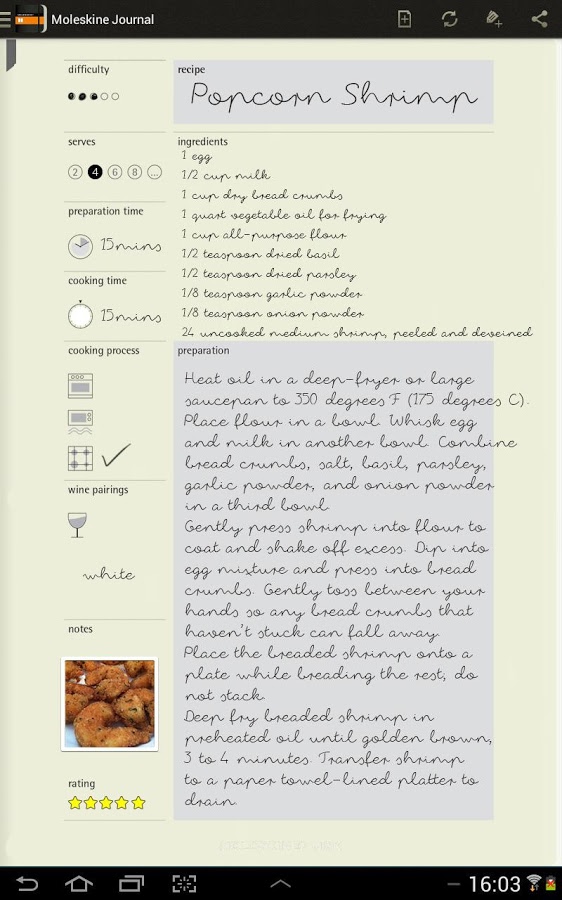 Moleskine Journal
difficulty
recipe
Popcorn Shrimp
serves
2 4 6 8 ...
preparation time
15mins
cooking time
15mins
cooking process
wine pairings
white
notes
rating
ingredients
1 egg
1/2 cup milk
1 cup dry bread crumbs
1 quart vegetable oil for frying
1 cup all-purpose flour
1/2 teaspoon dried basil
1/2 teaspoon dried parsley
1/8 teaspoon garlic powder
1/8 teaspoon onion powder
24 uncooked medium shrimp, peeled and deveined
preparation
Heat oil in a deep-fryer or large
saucepan to 350 degrees F (175 degrees C).
Place flour in a bowl. Whisk egg
and milk in another bowl. Combine
bread crumbs, salt, basil, parsley,
garlic powder, and onion powder
in a third bowl.
Gently press shrimp into flour to
coat and shake off excess. Dip into
egg mixture and press into bread
crumbs. Gently toss between your
hands so any bread crumbs that
haven't stuck can fall away.
Place the breaded shrimp onto a
plate while breading the rest; do
not stack.
Deep fry breaded shrimp in
preheated oil until golden brown,
3 to 4 minutes. Transfer shrimp
to a paper towel-lined platter to
drain.
16:03